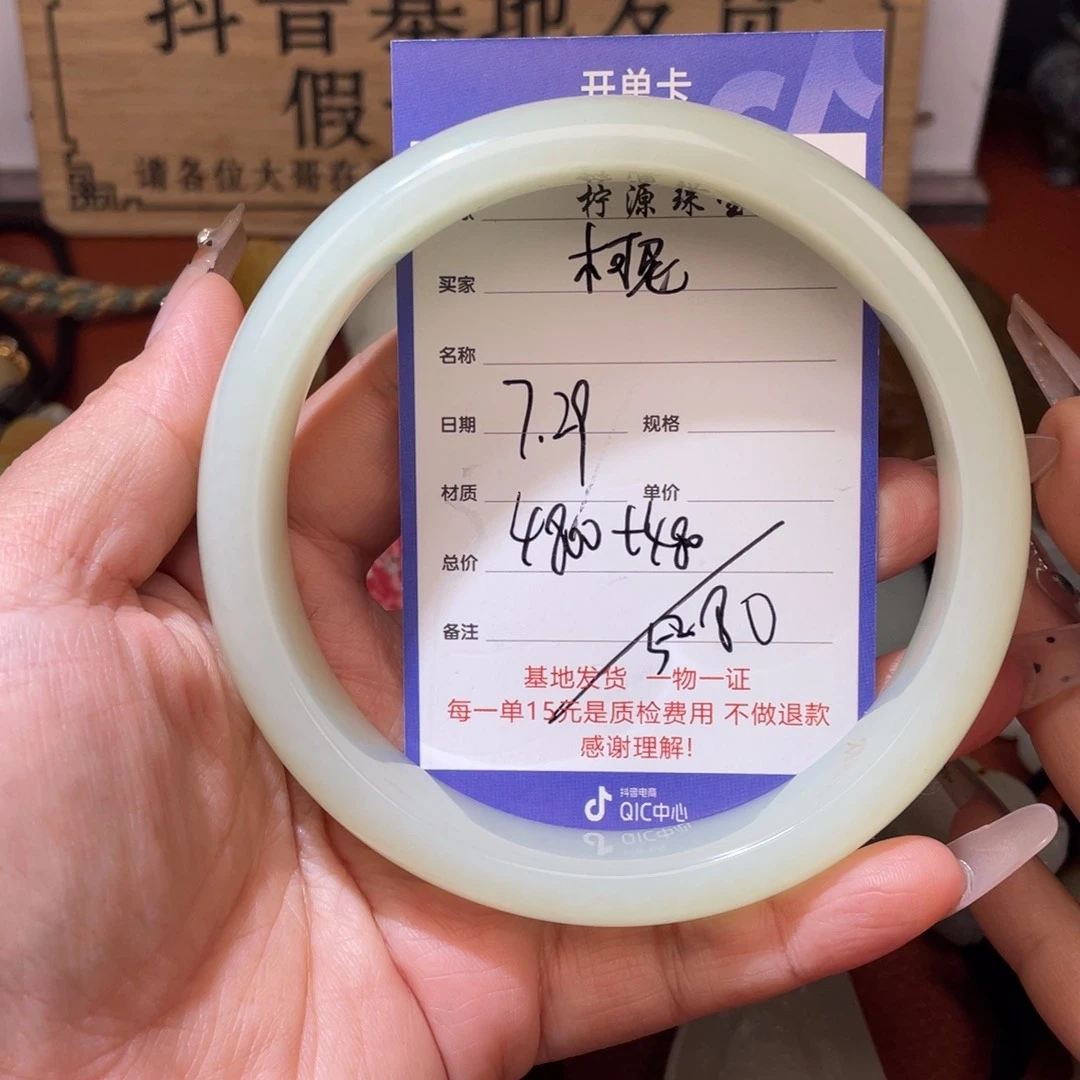 抖音基地发货
假
请各位大哥在
开单卡
柠源珠宝
买家
名称
日期 7.29 规格
材质 单价
总价 4800+480
备注 5280
基地发货 一物一证
每一单15元是质检费用 不做退款
感谢理解!
抖音电商
QIC中心